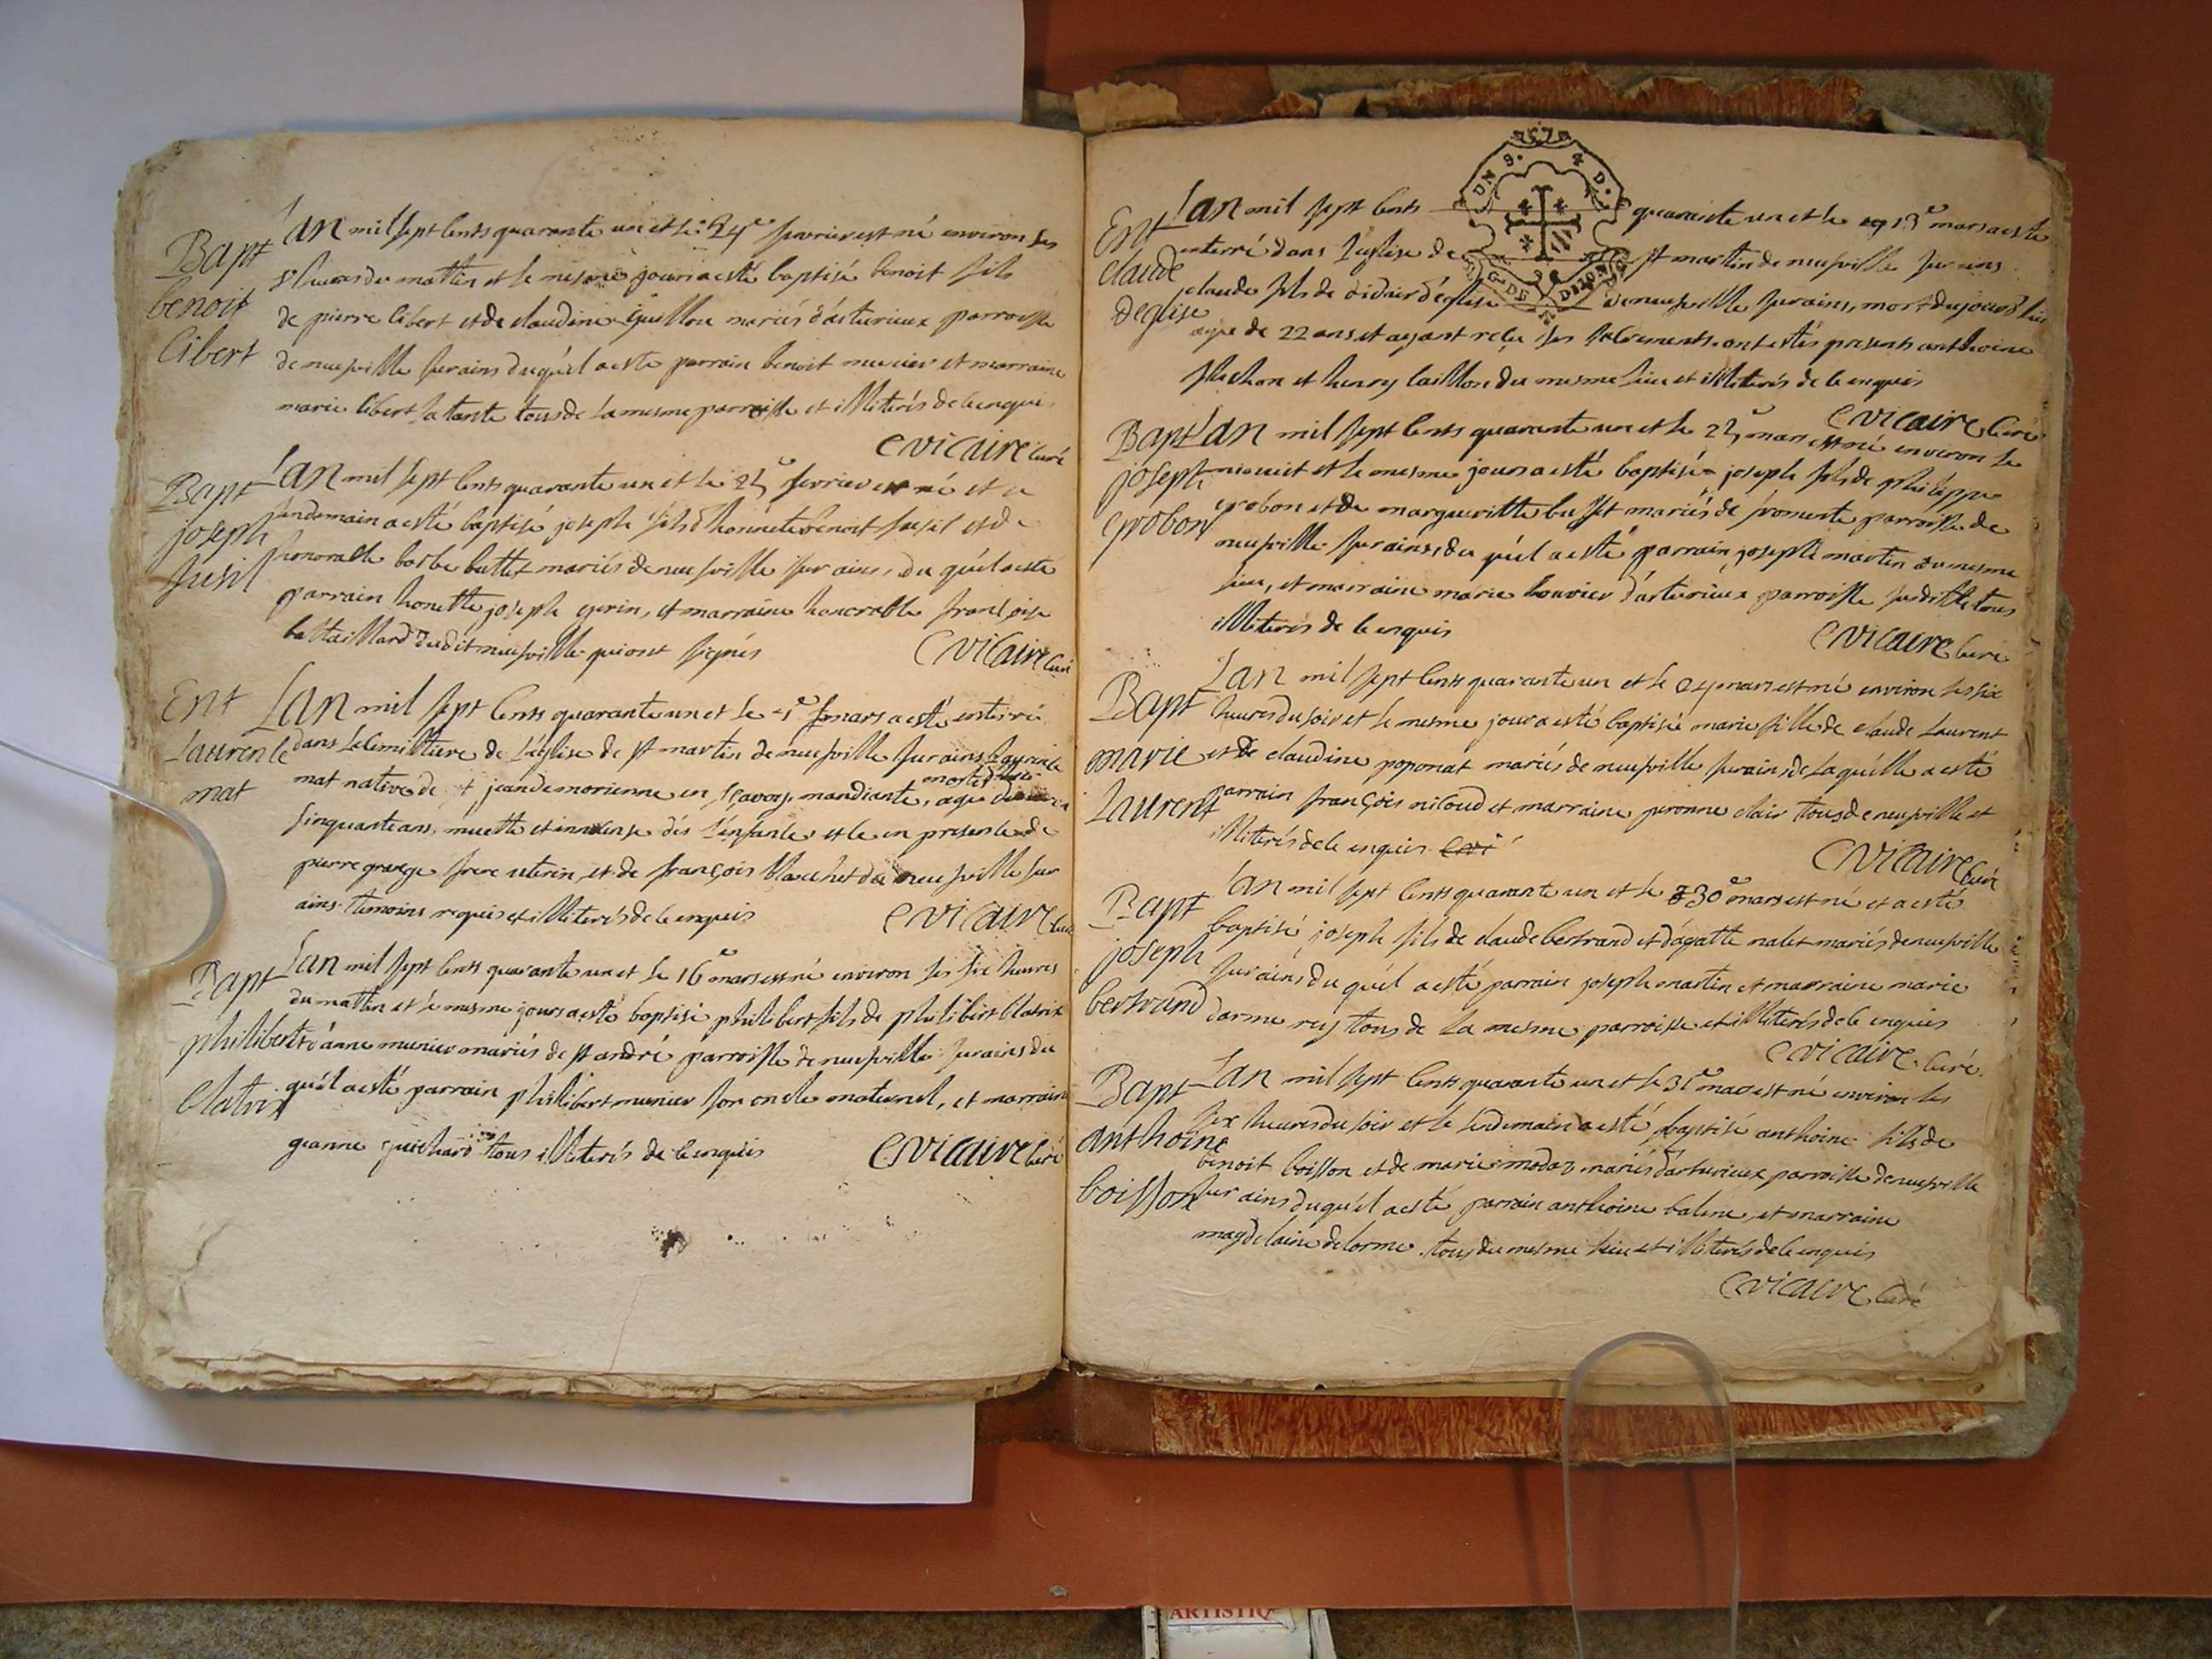 Bapt
benoit
Cibert
L'an mil sept cents quarante un et le 24e fevrier est né environ les
heures du mattin et le mesme jour a esté baptisé benoit fils
de pierre Cibert et de claudine Guillon mariés d'arturieux parroisse
de neufville sur ains duquél a esté parrain benoit munier et marraine
marie Cibert sa tante tous de la mesme parroisse et illiterés de ce enquis
C vicaire Curé
Bapt
joseph
fusil
L'an mil sept cents quarante un et le 25e fevrier est né et le
lendemain a esté baptisé joseph fils d'honnéte benoit fusil et de
honorable barbe buttet mariés de neufville sur ains, du quél a esté
parrain honette joseph gerin, et marraine honorable françoise
battaillard dudit neufville qui ont signés
C vicaire Curé
Ent
Laurence
mat
L'an mil sept cents quarante un et le 1e mars a esté enterré
dans le cemittiere de l'église de st martin de neufville sur ains Laurence
mat native de st jean de morienne en sçavoy, mandiante, morte d'hier agé d'environ
sinquante ans, muette et innocense dés l'enfance et ce en presence de
pierre grange frere uterin, et de françois blanchet de neufville sur
ains temoins requis et illiterés de ce enquis
C vicaire Curé
Bapt
philibert
Clatrix
L'an mil sept cents quarante un et le 16e mars est né environ les six heures
du mattin et le mesme jour a esté baptisé philibert fils de philibert Clatrix
et d'anne munier mariés de st andré parroisse de neufville sur ains du
quél a esté parrain philibert munier son oncle maternel, et marraine
jeanne guichard tous illiterés de ce enquis
C vicaire Curé
UN 9. 4 D.
G. DE DIJON
Ent
claude
deglise
L'an mil sept cents quarante un et le 19e mars a esté
enterré dans l'église de st martin de neufville sur ains
claude fils de didier d'église de neufville sur ains, mort du jourd'hier
agé de 22 ans et ayant reçu les sacrements. ont estés presents anthoine
plachon et henry caillon du mesme lieu et illiterés de ce enquis
C vicaire Curé
Bapt
joseph
grobon
L'an mil sept cents quarante un et le 25e mars est né environ le
minuit et le mesme jour a esté baptisé joseph fils de philippe
grobon et de margueritte busset mariés de fromente parroisse de
neufville sur ains, du quél a esté parrain joseph martin du mesme
lieu, et marraine marie bouvier d'arturieux parroisse susditte tous
illiterés de ce enquis
C vicaire Curé
Bapt
marie
Laurent
L'an mil sept cents quarante un et le 24 mars est né environ les six
heures du soir et le mesme jour a esté baptisé marie fille de claude Laurent
et de claudine poponat mariés de neufville sur ains de laquélle a esté
parrain françois nicoud et marraine peronne clair tous de neufville et
illiterés de ce enquis
C vicaire Curé
Bapt
joseph
bertrand
L'an mil sept cents quarante un et le 30e mars est né et a esté
baptisé joseph fils de claude bertrand et d'agatte nalet mariés de neufville
sur ains du quél a esté parrain joseph martin et marraine marie
darme rey tous de la mesme parroisse et illiterés de ce enquis
C vicaire Curé
Bapt
anthoine
boisson
L'an mil sept cents quarante un et le 31e mars est né environ les
six heures du soir et le lendemain a esté baptisé anthoine fils de
benoit boisson et de marie modaz mariés d'arturieux parroisse de neufville
sur ains duquél a esté parrain anthoine balme, et marraine
magdelaine delorme tous du mesme lieu et illiterés de ce enquis
C vicaire Curé
ARTISTIQ